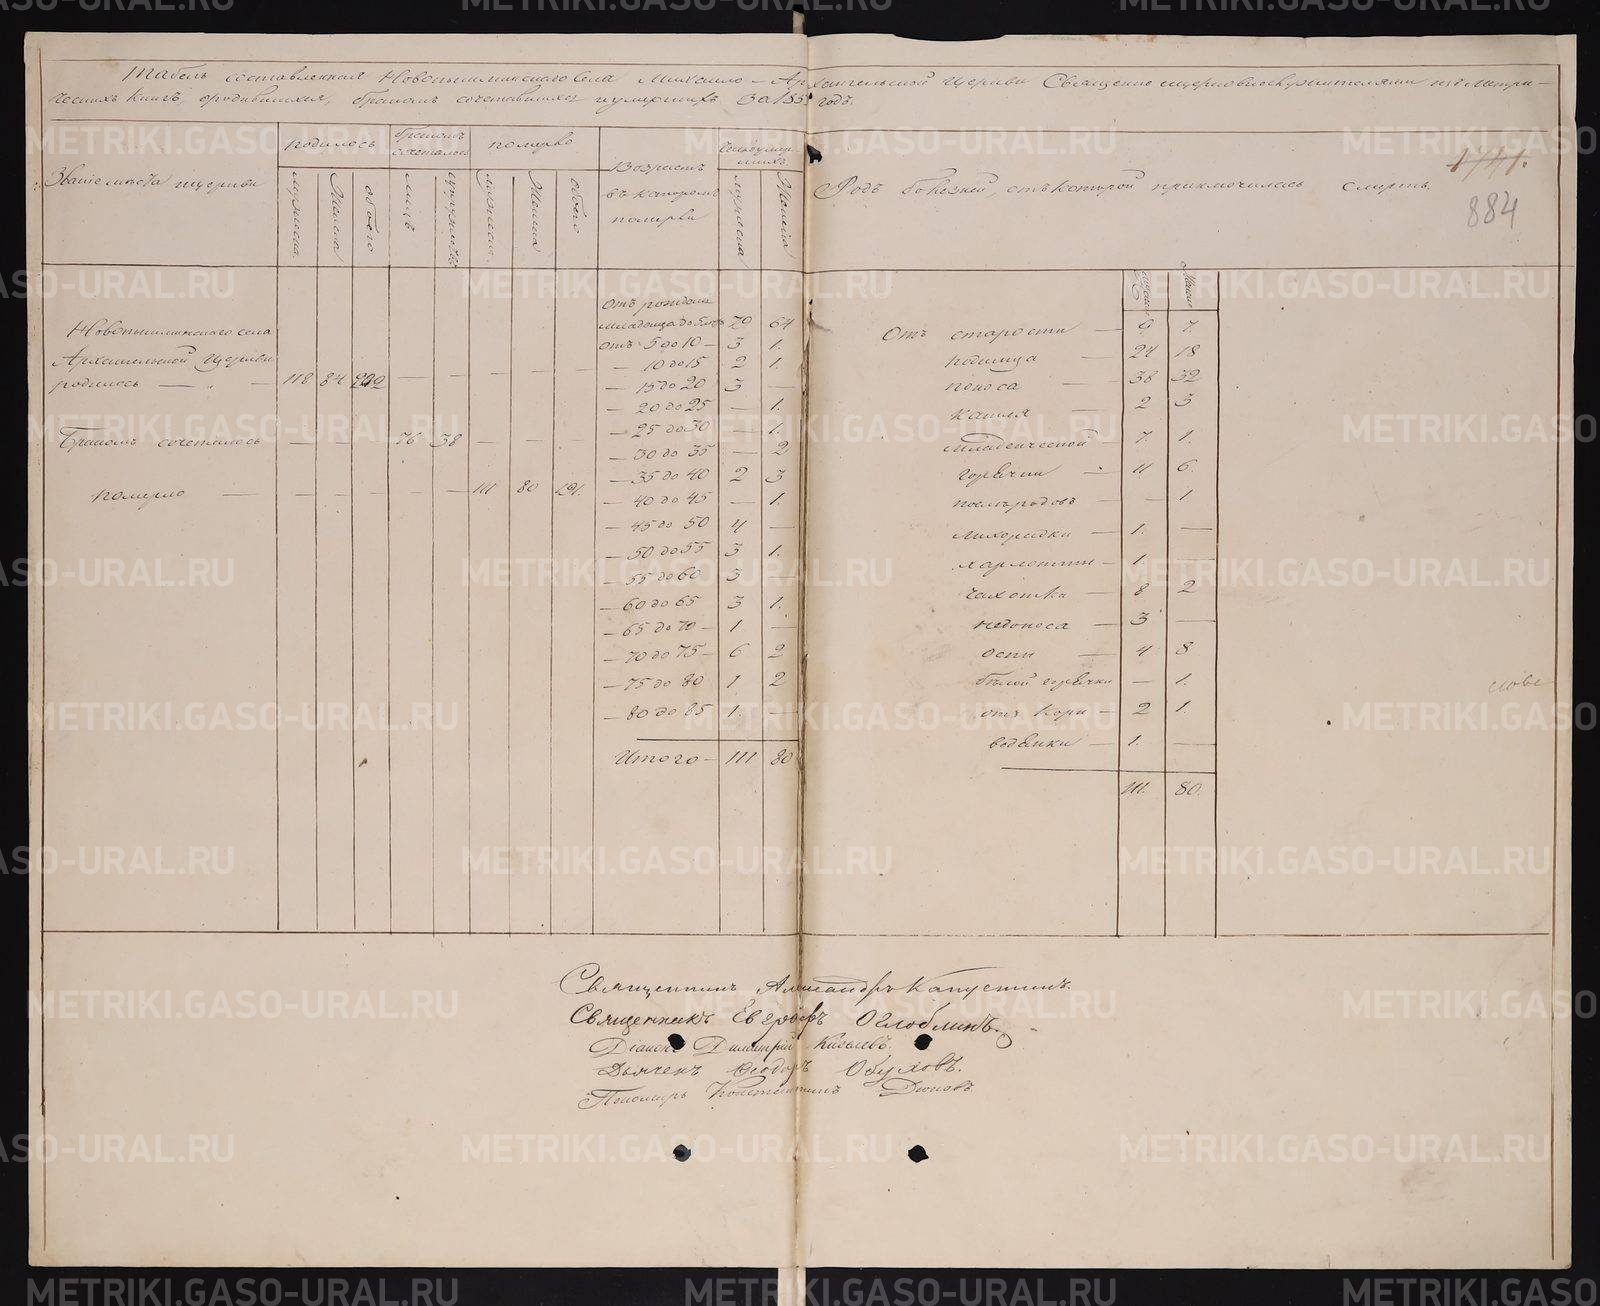 Табель составленная Новопышминскаго села Михаило-Архангельской Церкви Священноцерковнослужителями изъ Метри-
ческихъ Книгъ, ородившихся, бракомъ сочетавшихся иумершихъ за 185 годъ.
1741.
884
Званіе мѣста ицеркви
родилось
бракомъ сочеталось
померло
Возрастъ въ которомъ померли
Число умершихъ
Родъ болезней, отъ которой приключилась смерть.
мужеска женска обоего лицъ супружествъ мужеска женска обоего мужеска женска
мужеска женска
Новопышминскаго села
Архангельской Церкви
родилось — 118 84 202 — — — — —
Бракомъ сочеталось — — — 76 38 — — —
померло — — — — — — 111 80 191.
Отъ рожденія
младенца до 5 лѣтъ 79 64
отъ 5 до 10 — 3 1.
— 10 до 15 2 1.
— 15 до 20 3 —
— 20 до 25 — 1.
— 25 до 30 — 1.
— 30 до 35 — 2
— 35 до 40 2 3
— 40 до 45 — 1.
— 45 до 50 4 —
— 50 до 55 3 1.
— 55 до 60 3 —
— 60 до 65 3 1.
— 65 до 70 — 1. —
— 70 до 75 — 6 2
— 75 до 80 1. 2
— 80 до 85 1. —
Итого — 111 80
Отъ старости — 9 7.
родимца — 24 18
поноса — 38 32
кашля — 2 3
младенческой — 7. 1.
горячки — 11 6.
послѣ родовъ — — 1
лихорадки — 1. —
чахотки — 8 2
недоноса — 3 —
оспи — 4 8
бѣлой горячки — 1.
отъ кори — 2 1.
водянки — 1. —
111. 80.
Священникъ Александръ Капустинъ.
Священникъ Евграфъ Оглоблинъ.
Діаконъ Димитрій Киселевъ.
Дьячекъ Ѳеодоръ Обуховъ.
Пономарь Константинъ
METRIKI.GASO-URAL.RU